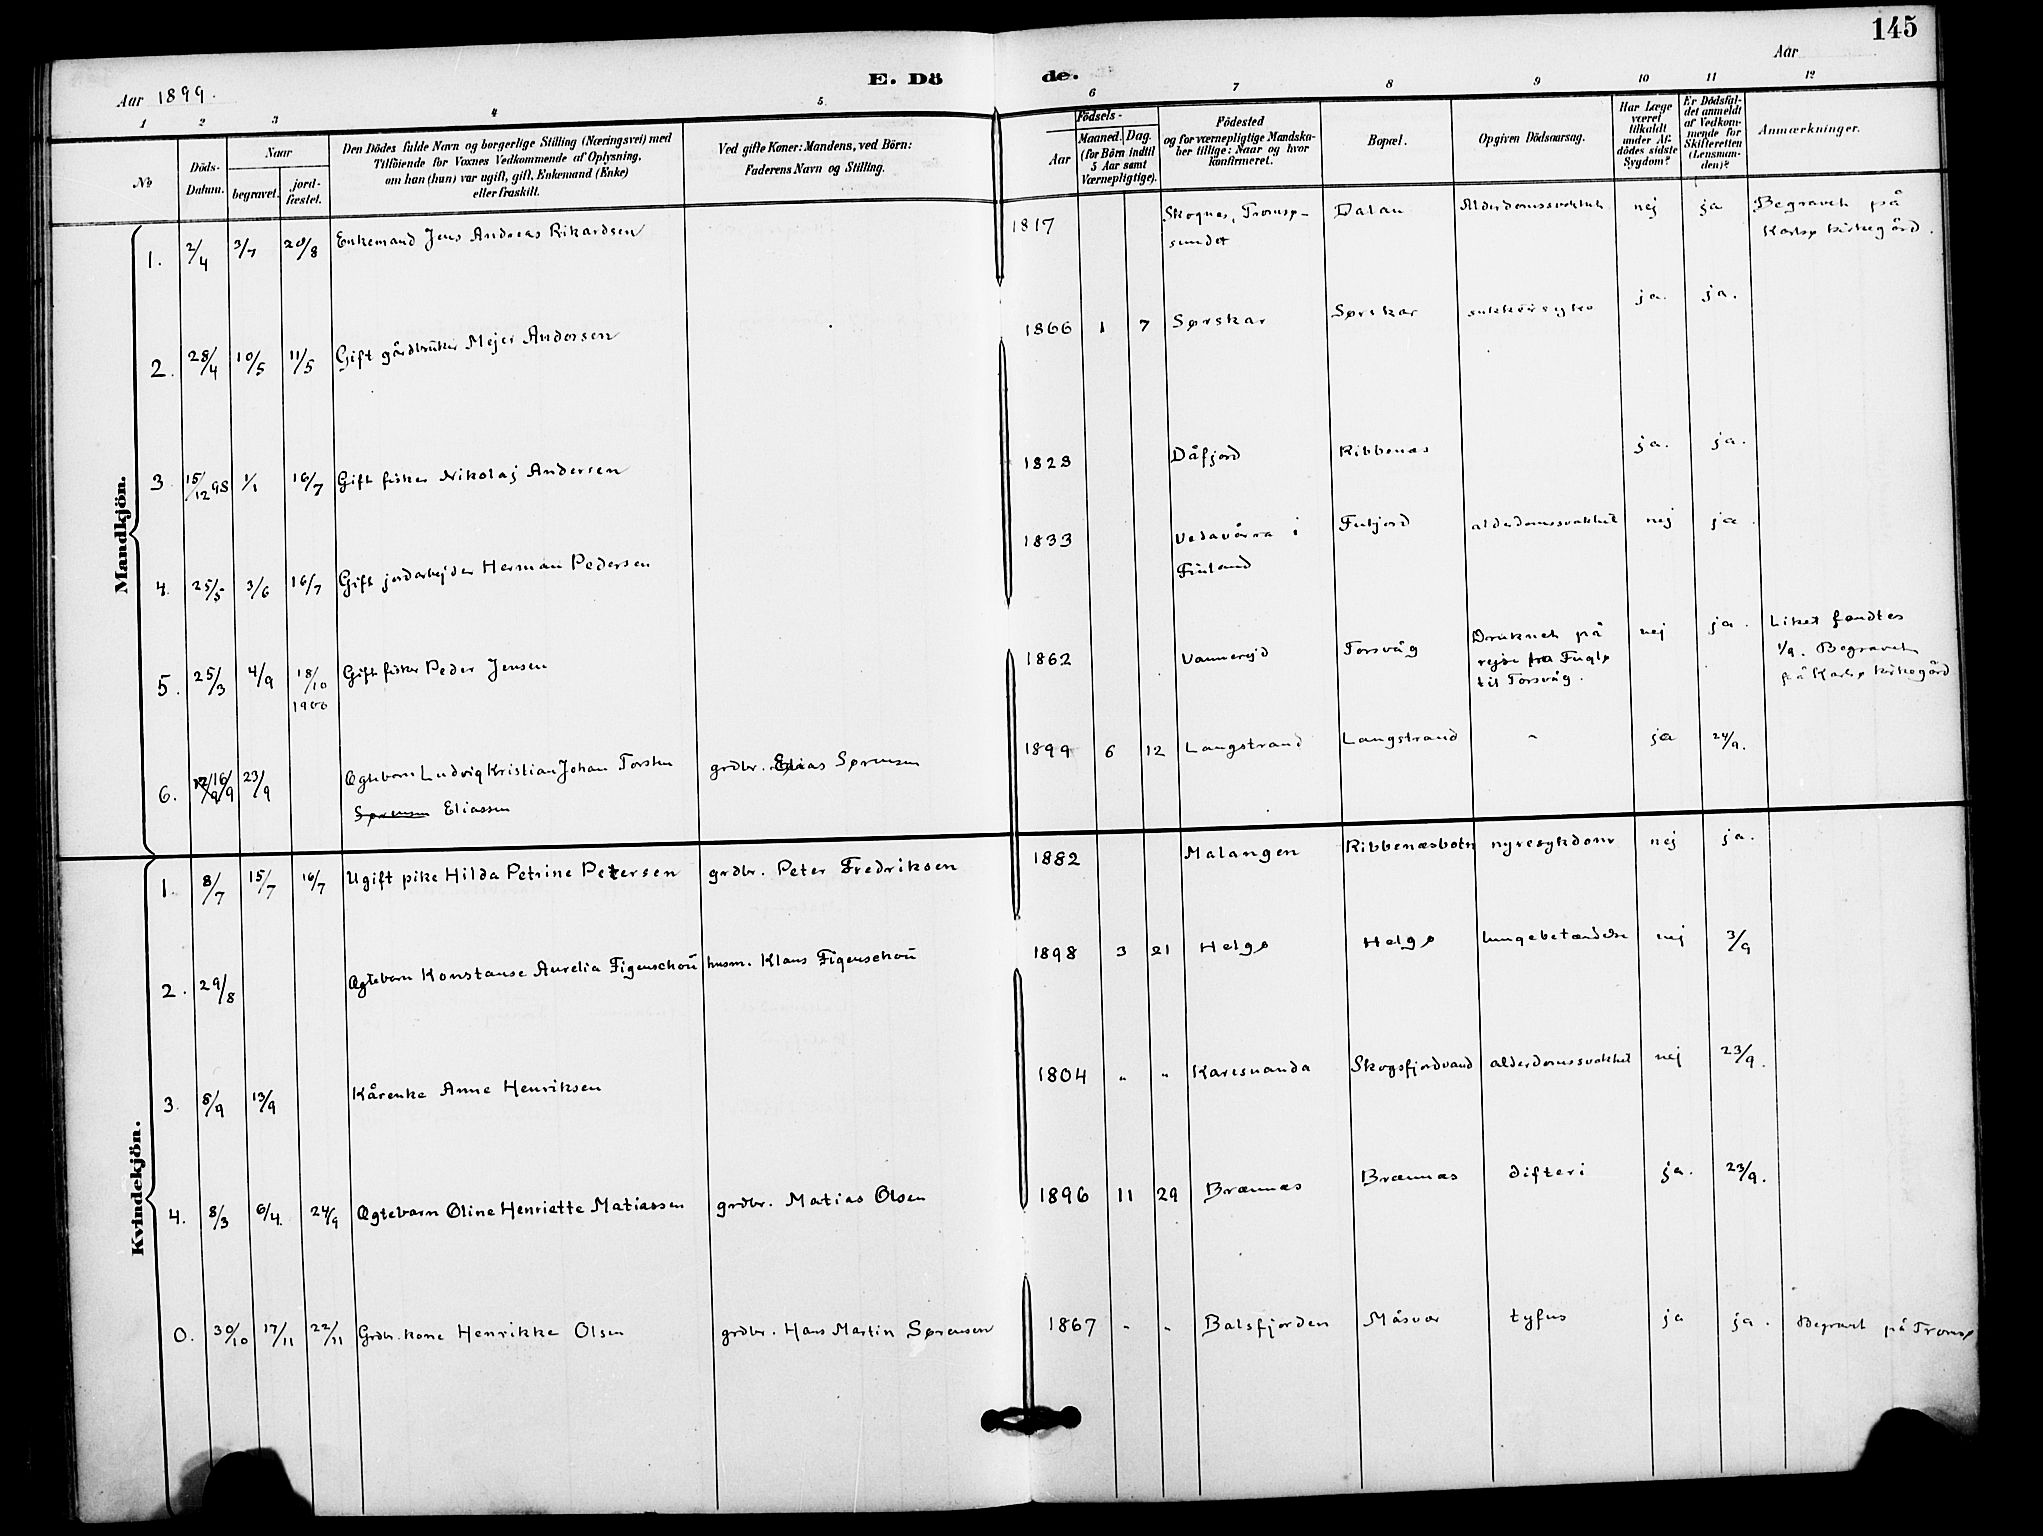 145
Aar 1899.
E. Dö de.
Aar
1 2 3 4 5. 6 7 8 9 10 11 12
№
Döds-Datum.
Naar
begravet.
jord-fæstet.
Den Dödes fulde Navn og borgerlige Stilling (Næringsvei) med
Tilföiende for Voxnes Vedkommende af Oplysning,
om han (hun) var ugift, gift, Enkemand (Enke)
eller fraskilt.
Ved gifte Koner: Mandens, ved Börn:
Faderens Navn og Stilling.
Födsels-
Aar
Maaned. Dag.
(for Börn indtil
5 Aar samt
Værnepligtige).
Födested
og for værnepligtige Mandska-
ber tillige: Naar og hvor
konfirmeret.
Bopæl.
Opgiven Dödsaarsag.
Har Læge
været
tilkaldt
under Af-
dödes sidste
Sygdom?
Er Dödsfal-
det anmeldt
af Vedkom-
mende for
Skifteretten
(Lensman-
den)?
Anmærkninger.
Mandkjön.
1. 2/4 3/7 20/8 Enkemand Jens Andreas Rikardsen 1817 Skognes, Tromsø- Dalan Alderdomssvakhet nej ja Begravet på
sundet Karlsø kirkegård.
2. 28/4 10/5 11/5 Gift gårdbruker Mejer Andersen 1866 1 7 Sørskar Sørskar sukkersyke ja. ja.
3 15/12 98 1/1 16/7 Gift fisker Nikolaj Andersen 1828 Dåfjord Ribbenæs ja. ja.
4. 25/5 3/6 16/7 Gift jordarbejder Herman Pedersen 1833 Vedavårra i alderdomssvakhet nej ja
Finland
5. 25/3 4/9 18/10 1900 Gift fisker Peder Jensen 1862 Vannerejd Torsvåg Druknet på nej ja. Liket fandtes
rejse fra Fuglø 1/9. Begravet
til Torsvåg. på Karlsø kirkegård
6. 12/9 16/9 23/9 Ægtebarn Ludvig Kristian Johan Torsten grdbr. Elias Sørensen 1899 6 12 Langstrand Langstrand " ja 24/9.
Sørensen Eliassen
Kvindekjön.
1. 8/7 15/7 16/7 Ugift pike Hilda Petrine Petersen grdbr. Peter Fredriksen 1882 Malangen Ribbenæsbotn nyresykdom nej ja.
2. 29/8 Ægtebarn Konstanse Aurelia Figenschoŭ husm. Klaus Figenschoŭ 1898 3 21 Helgø Helgø lungebetændelse nej 3/9
3. 8/9 13/9 Kårenke Anne Henriksen 1804 " " Karesuanda Skogsfjordvand alderdomssvakhet nej 23/9.
4. 8/3 6/4. 24/9 Ægtebarn Oline Henriette Matiassen grdbr. Matias Olsen 1896 11 29 Brænnæs Brænnæs difteri ja. 23/9.
0. 30/10 17/11 22/11 Grdbr. kone Henrikke Olsen grdbr. Hans Martin Sørensen 1867 " " Balsfjorden Måsvær tyfus ja ja. Begravet på Tromsø